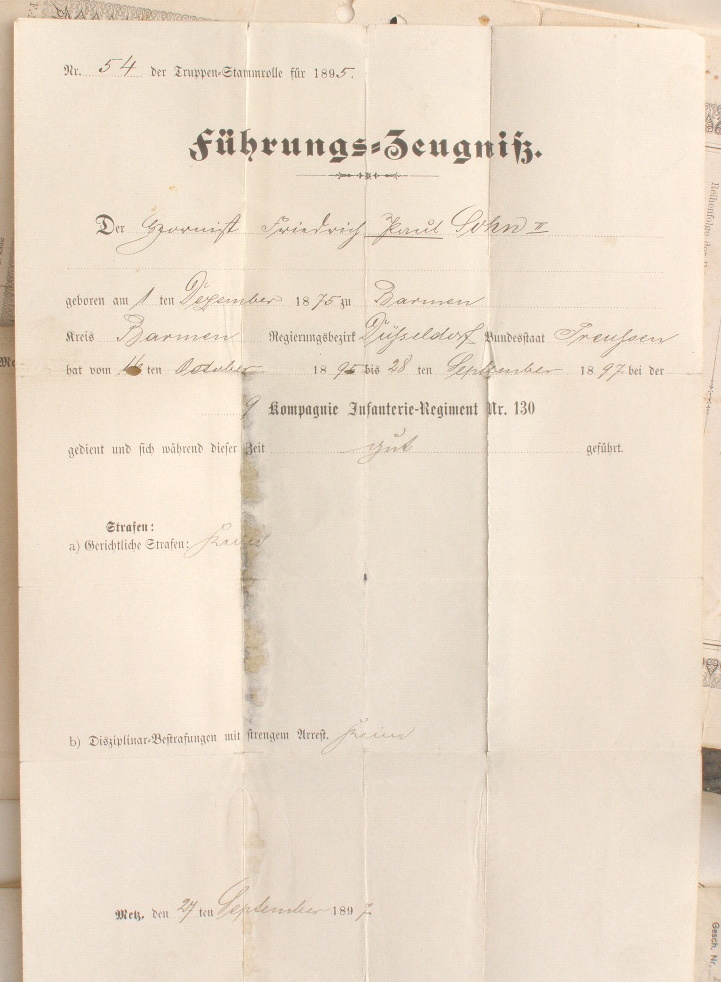 Nr. 54 der Truppen-Stammrolle für 1895.
Führungs-Zeugniß.
Der Hornist Friedrich Paul Sohn II
geboren am 1 ten Dezember 1875 zu Barmen
Kreis Barmen Regierungsbezirk Düsseldorf Bundesstaat Preussen
hat vom ten October 1895 bis 28 ten September 1897 bei der
9 Kompagnie Infanterie-Regiment Nr. 130
gedient und sich während dieser Zeit gut geführt.
Strafen:
a) Gerichtliche Strafen: Keine
b) Disziplinar-Bestrafungen mit strengem Arrest. Keine
Metz, den 27 ten September 1897
Gesch. Nr.